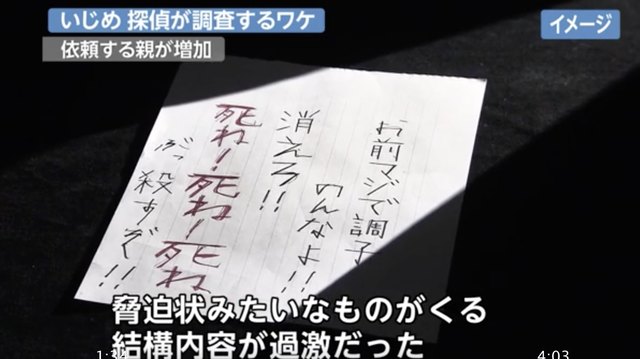 いじめ 探偵が調査するワケ
依頼する親が増加
イメージ
お前マジで調子
のんなよ!!
消えろ!!
死ね! 死ね! 死ね
ぶっ殺すぞ!!
脅迫状みたいなものがくる
結構内容が過激だった
4:03